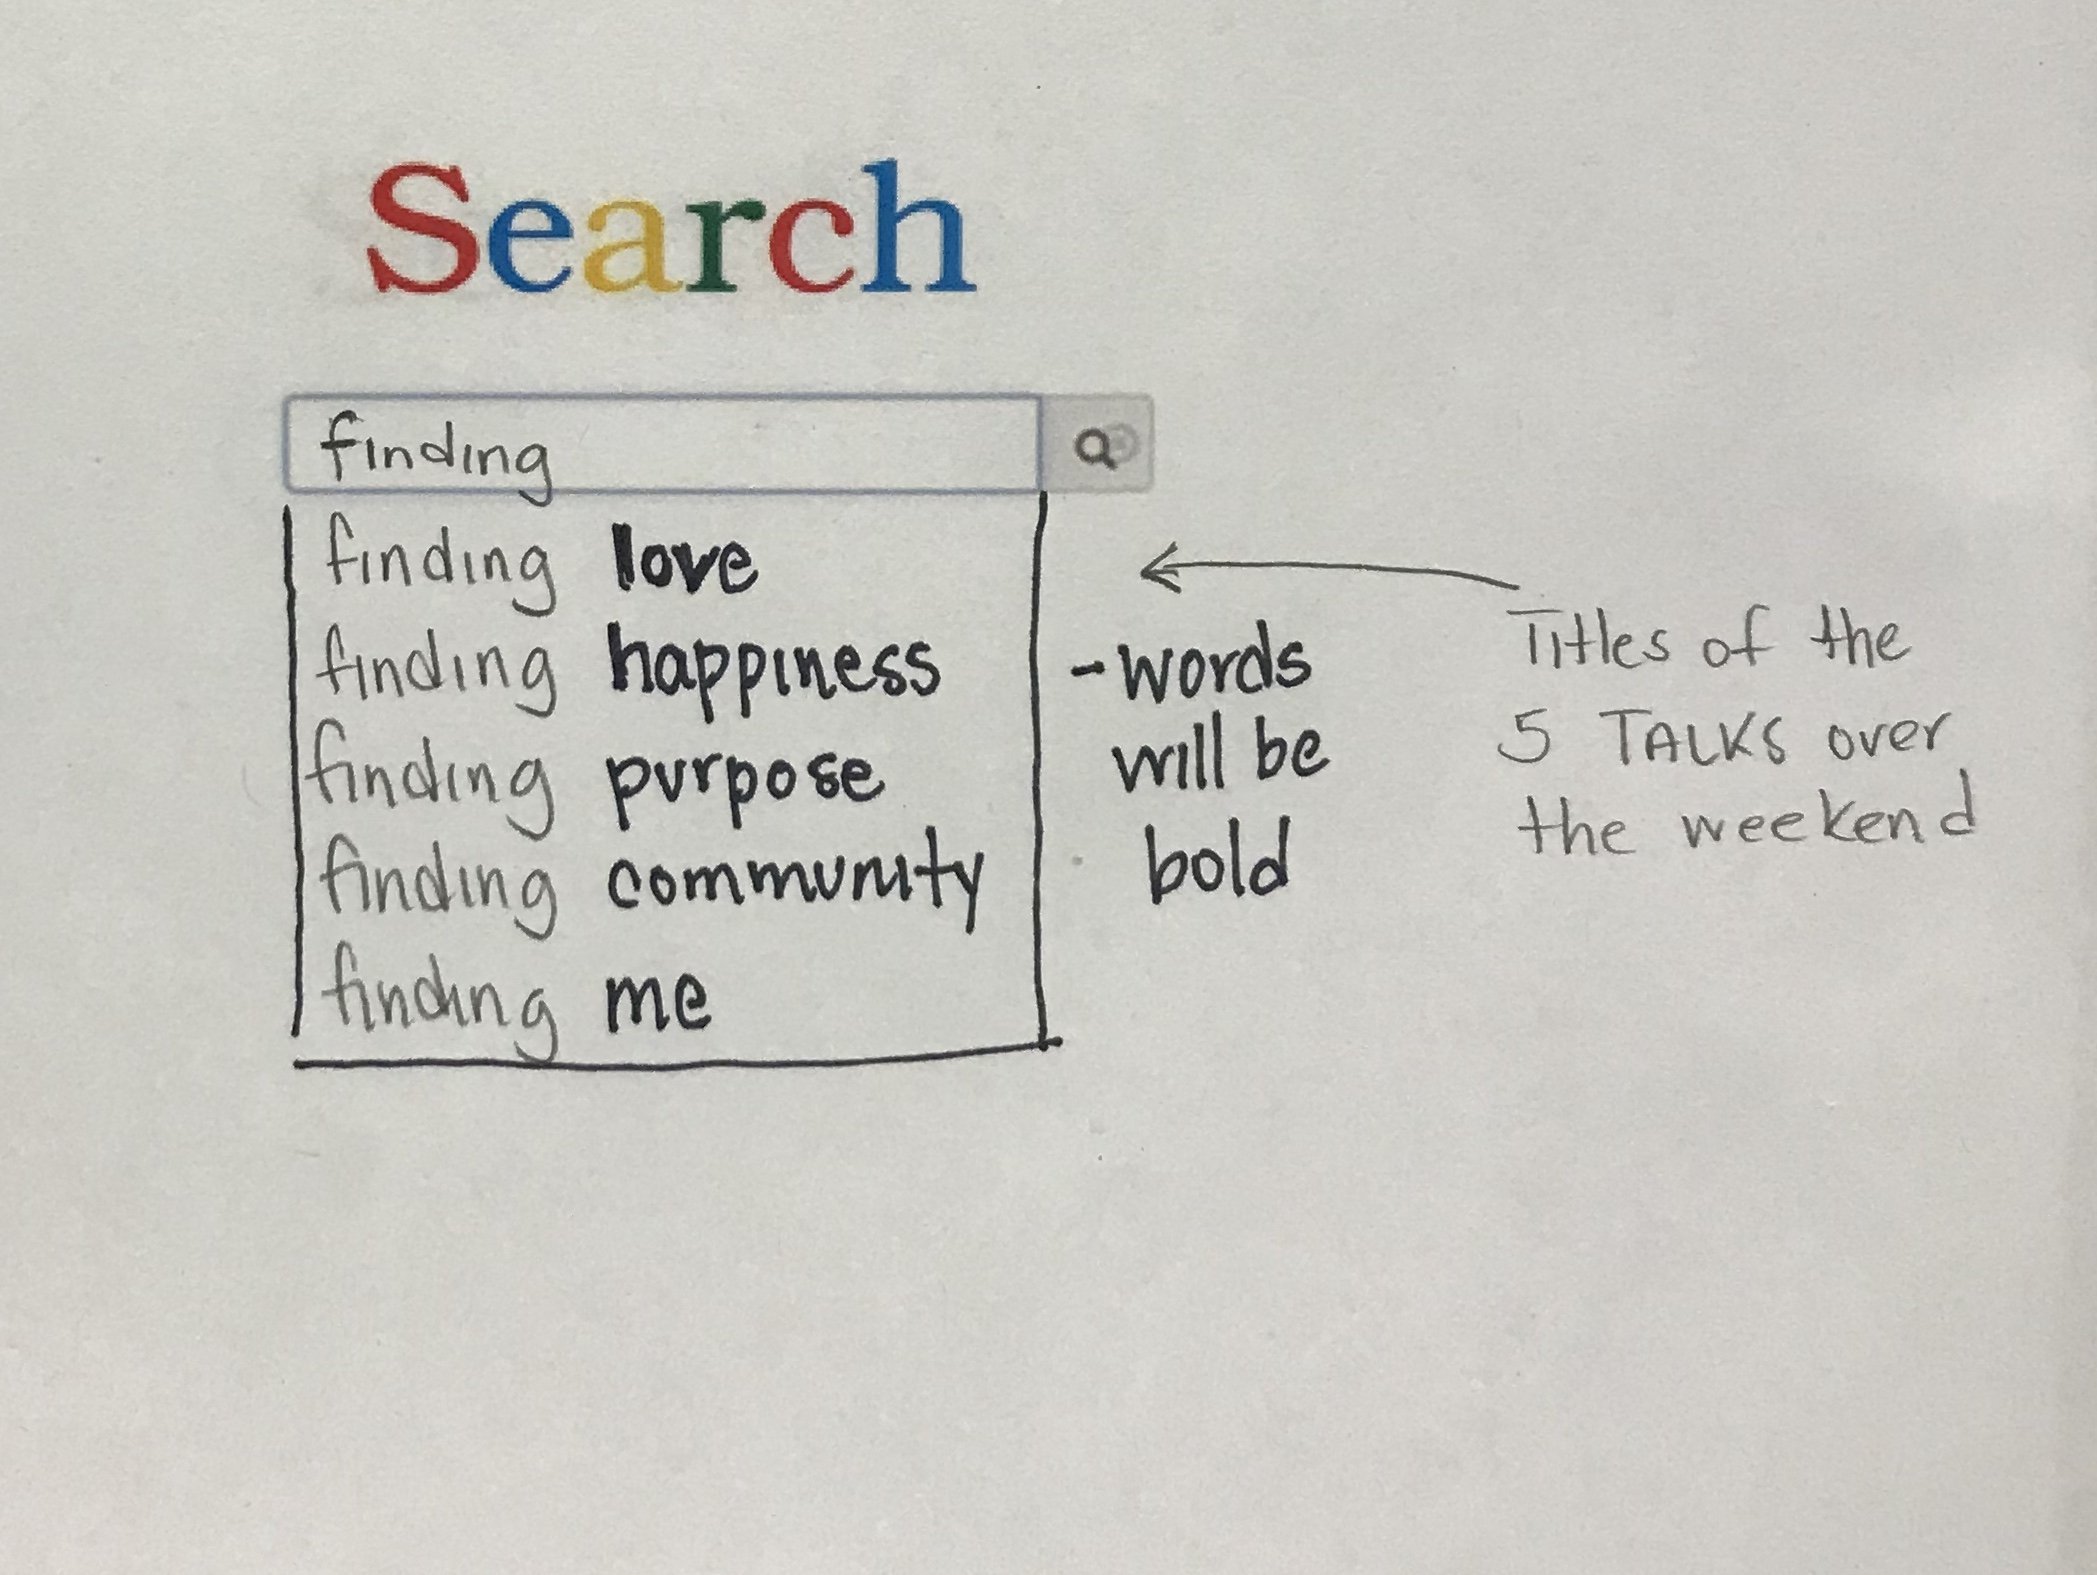 Search
finding
finding love
finding happiness
finding purpose
finding community
finding me
-words
will be
bold
Titles of the
5 TALKS over
the weekend